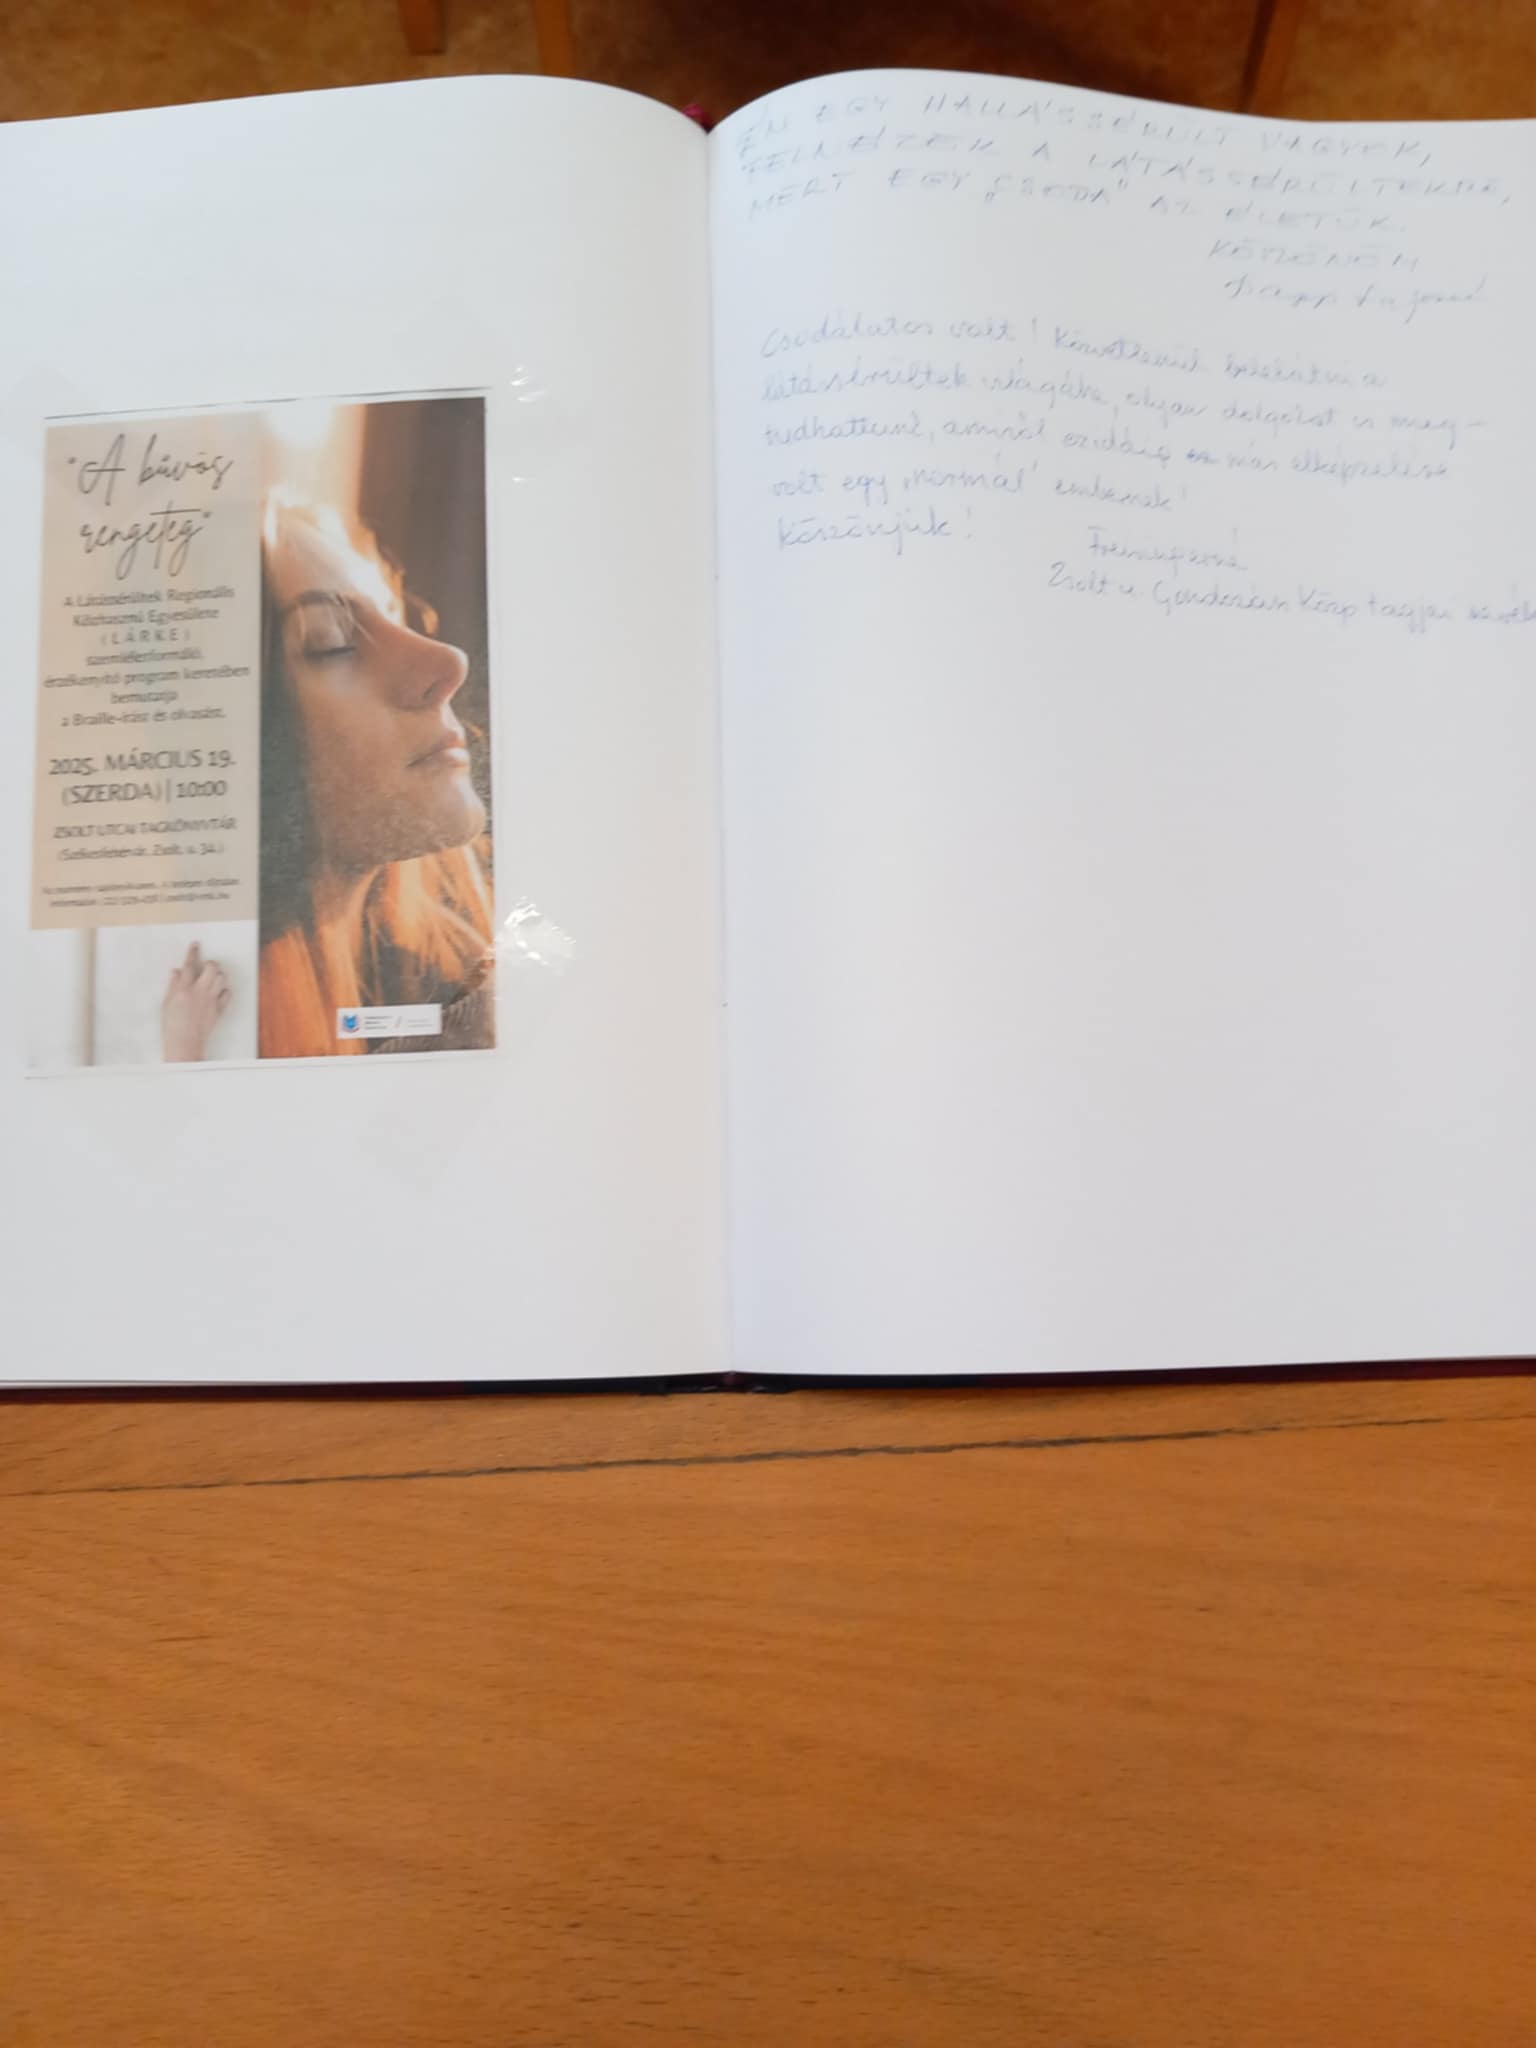 "A bűvös
rengeteg"
A Látássérültek Regionális
Közhasznú Egyesülete
(LÁRKE)
szemléletformáló,
érzékenyítő program keretében
bemutatja
a Braille-írást és olvasást.
2025. MÁRCIUS 19.
(SZERDA) | 10:00
ZSOLT UTCAI TAGKÖNYVTÁR
(Székesfehérvár, Zsolt u. 34.)
ÉN EGY HALLÁSSÉRÜLT VAGYOK,
FELNÉZEK A LÁTÁSSÉRÜLTEKRE,
MERT EGY „CSODA" AZ ÉLETÜK.
KÖSZÖNÖM
Csodálatos volt! Közvetlenül belelátni a
látássérültek világába, olyan dolgokat is meg-
tudhattunk, amiről ezidáig se más elképzelése
volt egy „normál" embernek!
Köszönjük!
Zsolt u.